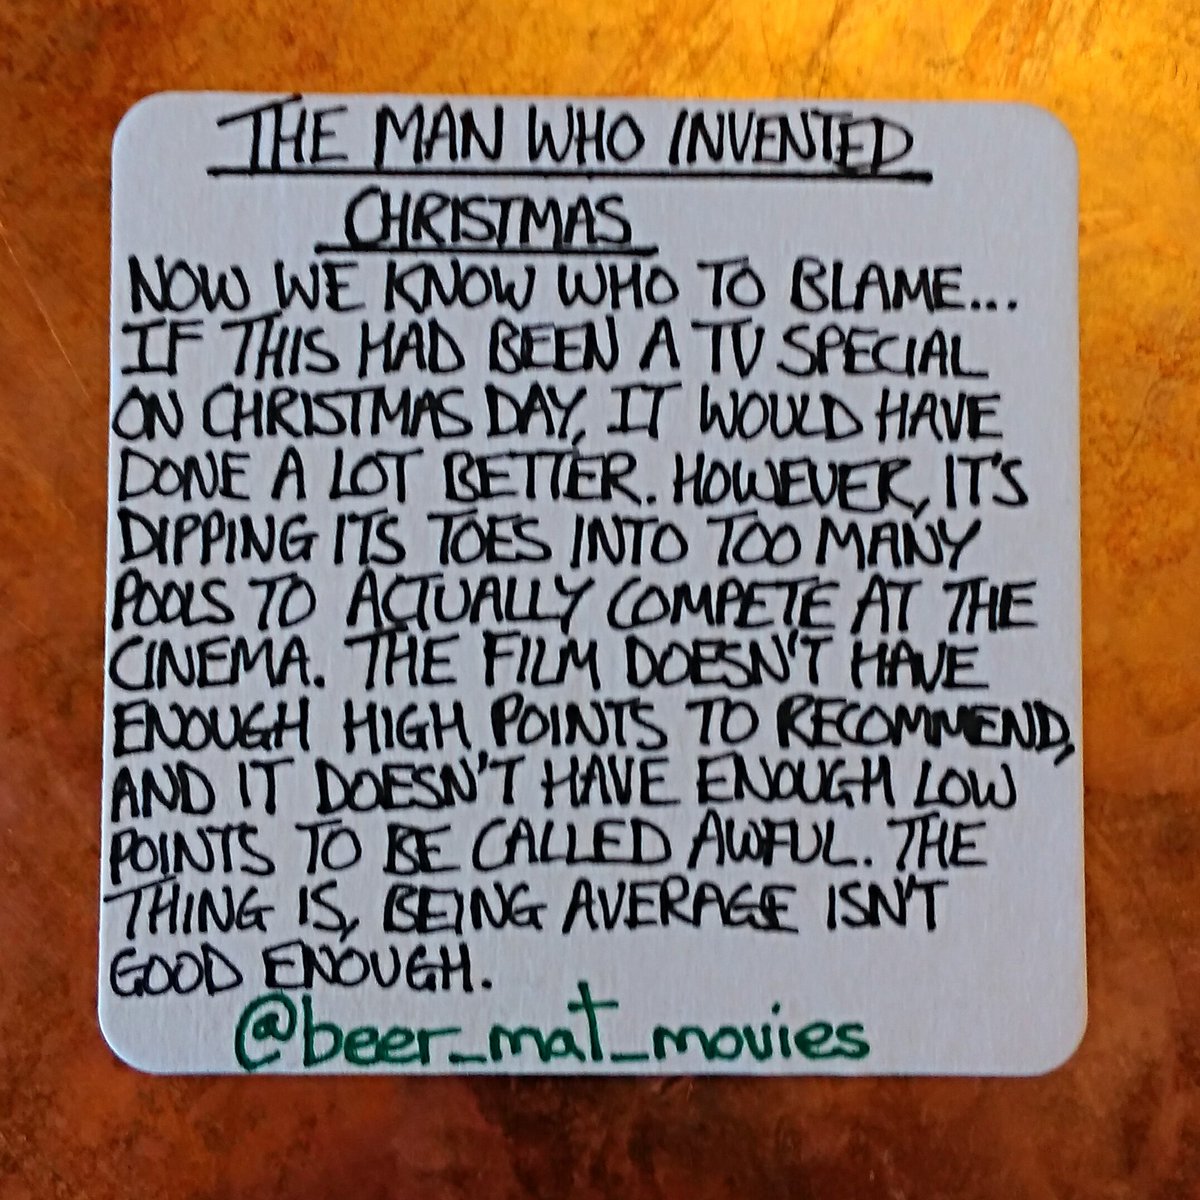 THE MAN WHO INVENTED
CHRISTMAS
NOW WE KNOW WHO TO BLAME...
IF THIS HAD BEEN A TV SPECIAL
ON CHRISTMAS DAY, IT WOULD HAVE
DONE A LOT BETTER. HOWEVER, IT'S
DIPPING ITS TOES INTO TOO MANY
POOLS TO ACTUALLY COMPETE AT THE
CINEMA. THE FILM DOESN'T HAVE
ENOUGH HIGH POINTS TO RECOMMEND,
AND IT DOESN'T HAVE ENOUGH LOW
POINTS TO BE CALLED AWFUL. THE
THING IS, BEING AVERAGE ISN'T
GOOD ENOUGH.
@beer_mat_movies